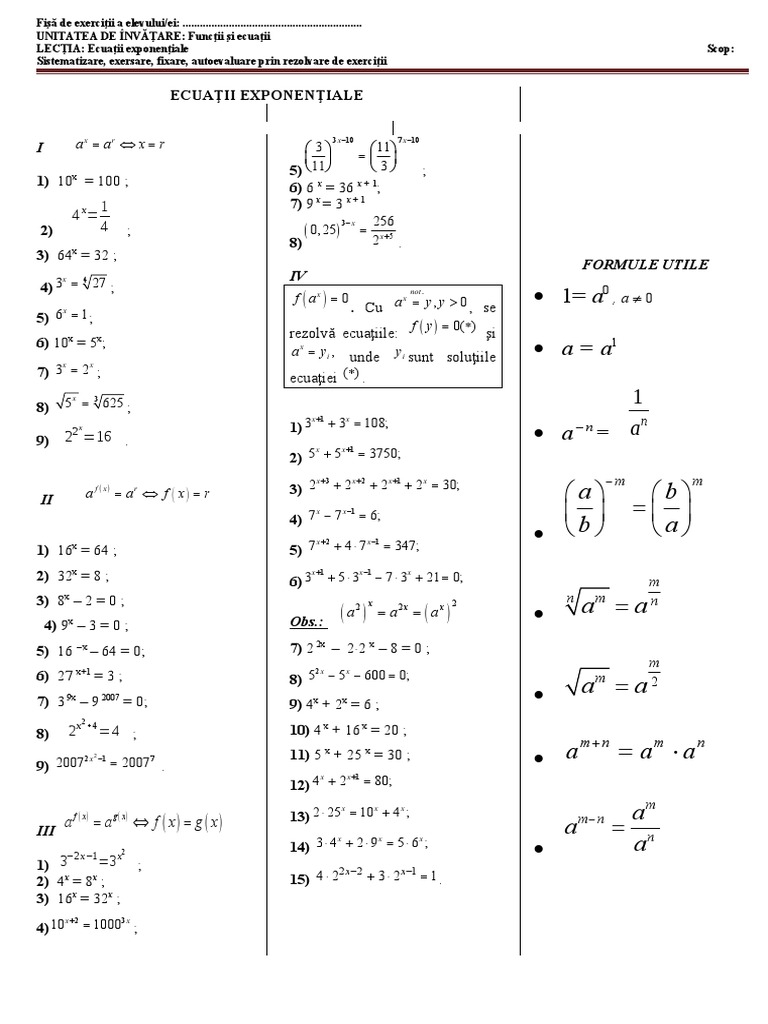 Fişă de exerciţii a elevului/ei: ..............................................................
UNITATEA DE ÎNVĂŢARE: Funcţii şi ecuaţii
LECŢIA: Ecuaţii exponenţiale Scop:
Sistematizare, exersare, fixare, autoevaluare prin rezolvare de exerciţii
ECUAŢII EXPONENŢIALE
I a^x = a^r ⇔ x = r
1) 10^x = 100 ;
2) 4^x = 1/4 ;
3) 64^x = 32 ;
4) 3^x = ∜27 ;
5) 6^x = 1;
6) 10^x = 5^x;
7) 3^x = 2^x ;
8) √(5^x) = ∛625 ;
9) 2^(2^x) = 16 .
II a^(f(x)) = a^r ⇔ f(x) = r
1) 16^x = 64 ;
2) 32^x = 8 ;
3) 8^x – 2 = 0 ;
4) 9^x – 3 = 0 ;
5) 16^(–x) – 64 = 0;
6) 27^(x+1) = 3 ;
7) 3^(9x) – 9^2007 = 0;
8) 2^(x^2+4) = 4 ;
9) 2007^(2x^2–1) = 2007^7 .
III a^(f(x)) = a^(g(x)) ⇔ f(x) = g(x)
1) 3^(–2x–1) = 3^(x^2) ;
2) 4^x = 8^x ;
3) 16^x = 32^x ;
4) 10^(x+2) = 1000^(3x) ;
5) (3/11)^(3x–10) = (11/3)^(7x–10) ;
6) 6^x = 36^(x + 1);
7) 9^x = 3^(x + 1)
8) (0,25)^(3–x) = 256/2^(x+5) .
IV
f(a^x) = 0 . Cu a^x =(not.) y, y > 0 , se
rezolvă ecuaţiile: f(y) = 0(*) şi
a^x = y_i , unde y_i sunt soluţiile
ecuaţiei (*) .
1) 3^(x+1) + 3^x = 108;
2) 5^x + 5^(x+1) = 3750;
3) 2^(x+3) + 2^(x+2) + 2^(x+1) + 2^x = 30;
4) 7^x – 7^(x–1) = 6;
5) 7^(x+2) + 4·7^(x–1) = 347;
6) 3^(x+1) + 5·3^(x–1) – 7·3^x + 21 = 0;
Obs.: (a^2)^x = a^(2x) = (a^x)^2
7) 2^(2x) – 2·2^x – 8 = 0 ;
8) 5^(2x) – 5^x – 600 = 0;
9) 4^x + 2^x = 6 ;
10) 4^x + 16^x = 20 ;
11) 5^x + 25^x = 30 ;
12) 4^x + 2^(x+1) = 80;
13) 2·25^x = 10^x + 4^x;
14) 3·4^x + 2·9^x = 5·6^x;
15) 4·2^(2x–2) + 3·2^(x–1) = 1 .
FORMULE UTILE
• 1 = a^0 , a ≠ 0
• a = a^1
• a^(–n) = 1/a^n
• (a/b)^(–m) = (b/a)^m
• ⁿ√(a^m) = a^(m/n)
• √(a^m) = a^(m/2)
• a^(m+n) = a^m · a^n
• a^(m–n) = a^m/a^n